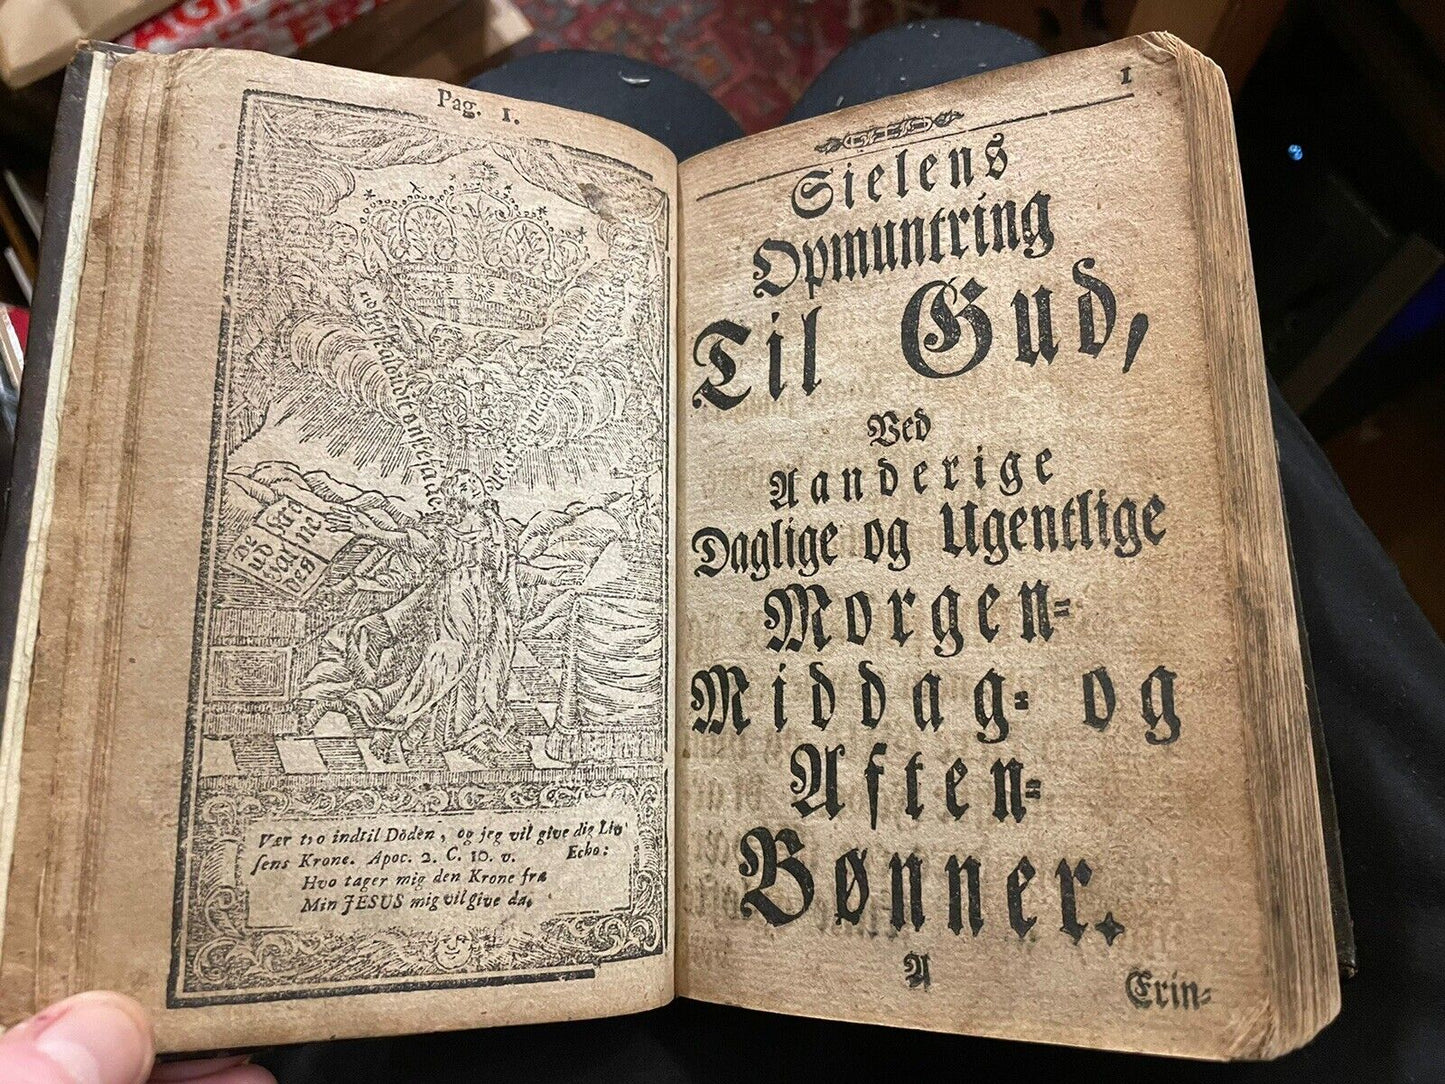 Pag. 1.
Vær tro indtil Döden, og jeg vil give dig Liv
sens Krone. Apoc. 2. C. 10. v. Echo:
Hvo tager mig den Krone fra
Min JESUS mig vil give da.
1
Sielens
Opmuntring
Til Gud,
Ved
Aanderige
Daglige og Ugentlige
Morgen-
Middag- og
Aften-
Bønner.
A
Erin-